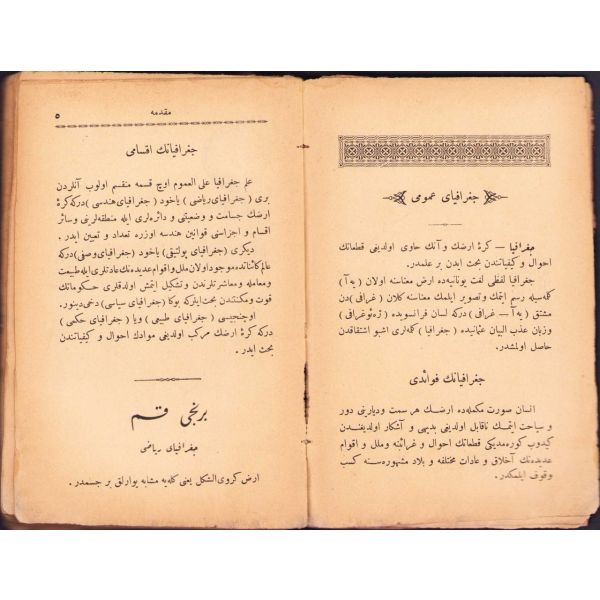 جغرافیای عمومی
جغرافیا — کرهٔ ارضك و آنك حاوی اولدیغی قطعاتك
احوال و کیفیاتندن بحث ایدن بر علمدر.
جغرافیا لفظی لغت یونانیه‌ده ارض معناسنه اولان ( یه آ )
کلمه‌سیله رسم ایتمك وتصویر ایلمك معناسنه کلان ( غرافی )دن
مشتق ( یه آ — غرافی ) درکه لسان فرانسویده ( ژه‌ئوغرافی )
وزبان عذب البیان عثمانیده ( جغرافیا ) کلمه‌لری اشبو اشتقاقدن
حاصل اولمشدر.
جغرافیانك فوائدی
انسان صورت مکمله‌ده ارضك هر سمت ودیارینی دور
و سیاحت ایتمك ناقابل اولدیغی بدیهی و آشکار اولدیغندن
کیدوب کوره‌مدیکی قطعاتك احوال و غرائبنه وملل و اقوام
عدیده‌نك آخلاق و عادات مختلفه و بلاد مشهوره‌سنه کسب
وقوف ایلمکدر.
مقدمه
٥
جغرافیانك اقسامی
علم جغرافیا علی العموم اوچ قسمه منقسم اولوب آنلردن
بری ( جغرافیای ریاضی ) یاخود ( جغرافیای هندسی ) درکه کرهٔ
ارضك جسامت و وضعیتی و دائره‌لری ایله منطقه‌لرینی وسائر
اقسام و اجزاسنی قوانین هندسه اوزره تعداد و تعیین ایدر.
دیکری (جغرافیای پولتیقی) یاخود (جغرافیای وصفی)درکه
عالم کائناتده موجود اولان ملل و اقوام عدیده‌نك عادتلری ایله طبیعت
ومعامله و معاشرتلرندن و تشکیل ایتمش اولدقلری حکوماتك
قوت ومکنتندن بحث ایلرکه بوکا (جغرافیای سیاسی) دخی دینور.
اوچنجیسی ( جغرافیای طبیعی ) ویا ( جغرافیای حکمی )
درکه کرهٔ ارضك مرکب اولدیغی موادك احوال و کیفیاتندن
بحث ایدر.
برنجی قسم
جغرافیای ریاضی
ارض کروی الشکل یعنی کله‌یه مشابه یوارلق بر جسمدر.